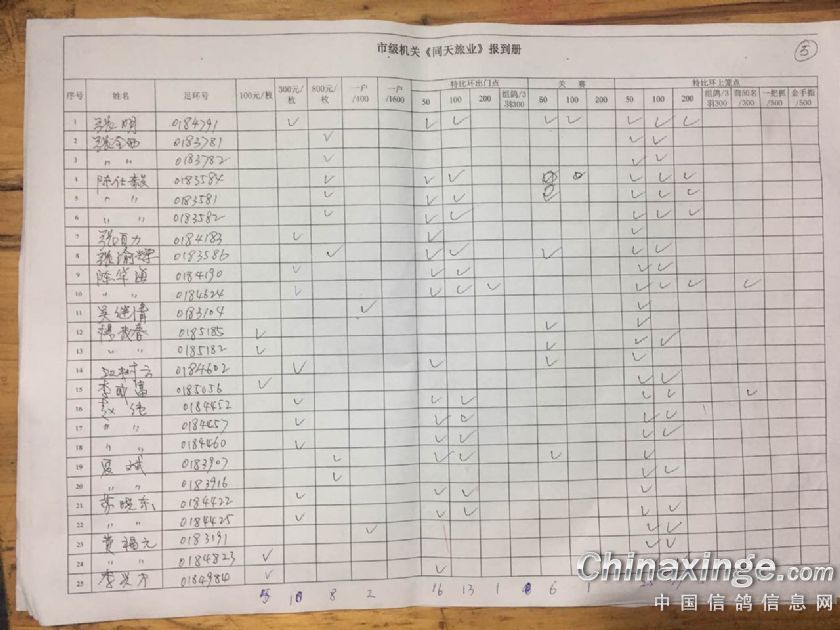 市级机关《同天旅业》报到册 5
序号 姓名 足环号 100元/枚 300元/枚 800元/枚 一户/400 一户/1600 特比环出门点 关赛 特比环上笼点
50 100 200 组鸽/3羽300 50 100 200 50 100 200 组鸽/3羽300 前30名/300 一把抓/500 金手指/500
1 张明 0184791 ✓ ✓ ✓ ✓ ✓ ✓ ✓ ✓
2 0183781 ✓ ✓ ✓
3 〃 〃 0183782 ✓ ✓ ✓
4 0183584 ✓ ✓ ✓ ✓ ✓ ✓
5 〃 〃 0183581 ✓ ✓ ✓ ✓ ✓ ✓ ✓
6 〃 〃 0183582 ✓ ✓ ✓ ✓ ✓ ✓
7 0184183 ✓ ✓ ✓
8 张渝辉 0183586 ✓ ✓ ✓ ✓ ✓ ✓
9 陈华 0184190 ✓ ✓ ✓ ✓ ✓
10 〃 〃 0184624 ✓ ✓ ✓ ✓ ✓ ✓ ✓ ✓
11 吴继倩 0183104 ✓ ✓
12 春 0185185 ✓ ✓ ✓
13 〃 〃 0185182 ✓ ✓ ✓ ✓
14 树方 0184602 ✓ ✓ ✓ ✓
15 李 0185056 ✓ ✓ ✓
16 赵伟 0184452 ✓ ✓ ✓ ✓ ✓ ✓
17 〃 〃 0184457 ✓ ✓ ✓ ✓ ✓
18 〃 〃 0184460 ✓ ✓ ✓ ✓ ✓
19 夏斌 0183907 ✓ ✓ ✓ ✓ ✓
20 〃 〃 0183916 ✓ ✓ ✓
21 晓东 0184422 ✓ ✓ ✓ ✓
22 〃 〃 0184425 ✓ ✓ ✓ ✓ ✓
23 黄福元 0183191 ✓ ✓ ✓
24 〃 〃 0184823 ✓ ✓ ✓
25 李兴 0184980 ✓ ✓
5 10 8 2 16 13 1 6 1
Chinaxinge.com
中国信鸽信息网